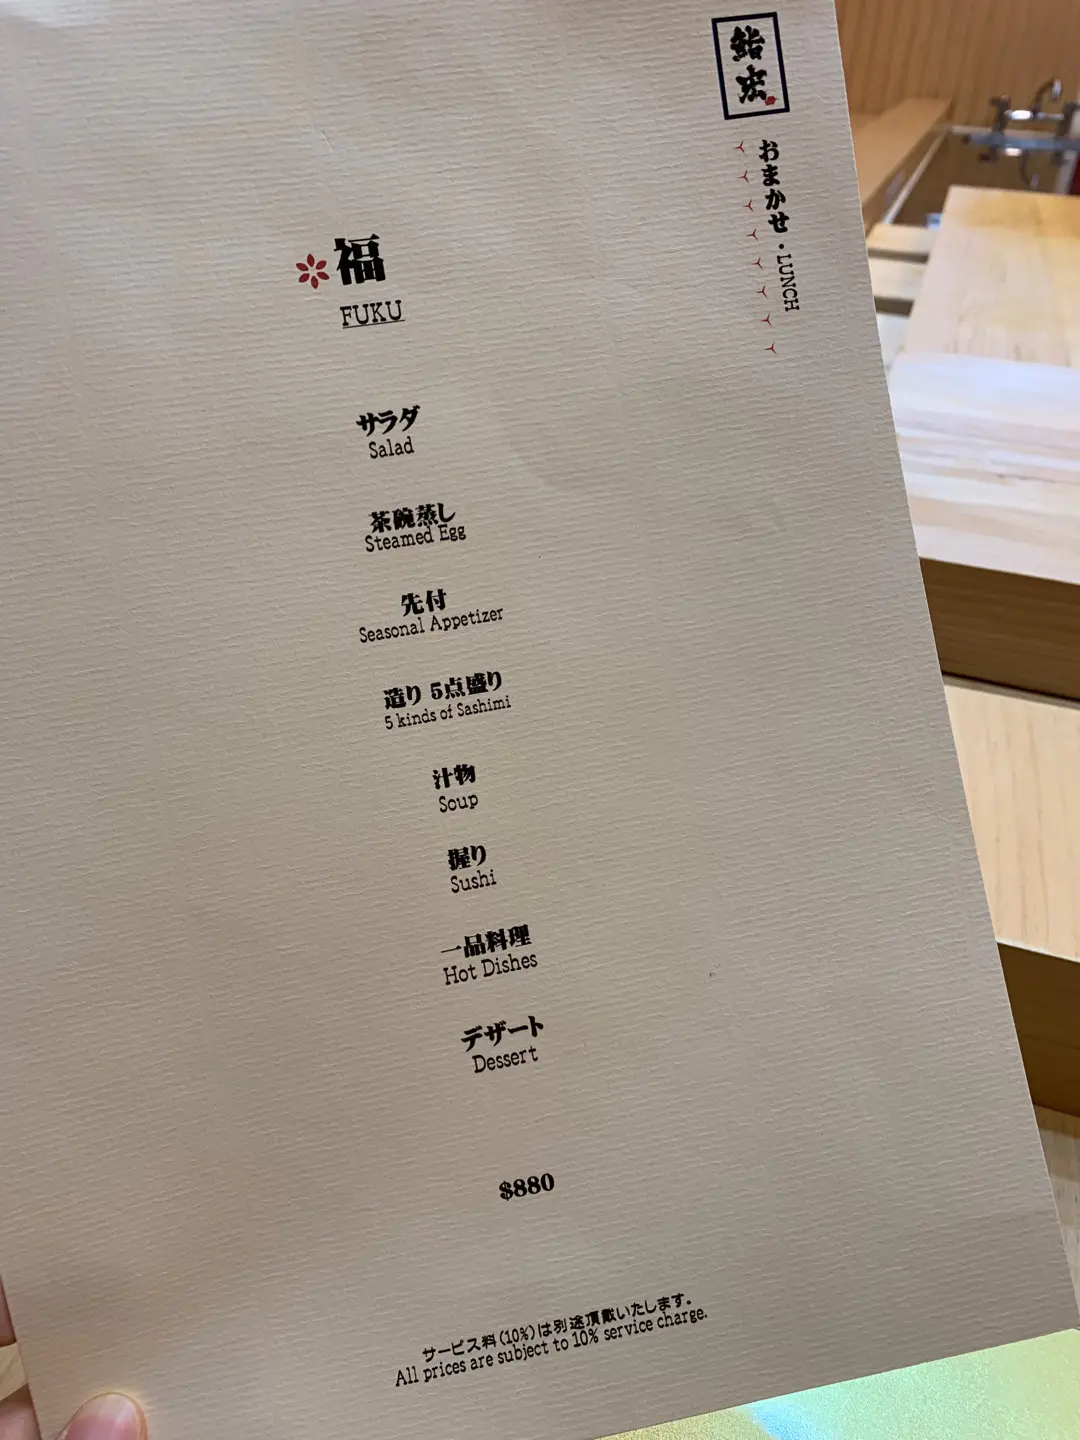 鮨
宏
おまかせ・LUNCH
福
FUKU
サラダ
Salad
茶碗蒸し
Steamed Egg
先付
Seasonal Appetizer
造り 5点盛り
5 kinds of Sashimi
汁物
Soup
握り
Sushi
一品料理
Hot Dishes
デザート
Dessert
$880
サービス料(10%)は別途頂戴いたします。
All prices are subject to 10% service charge.